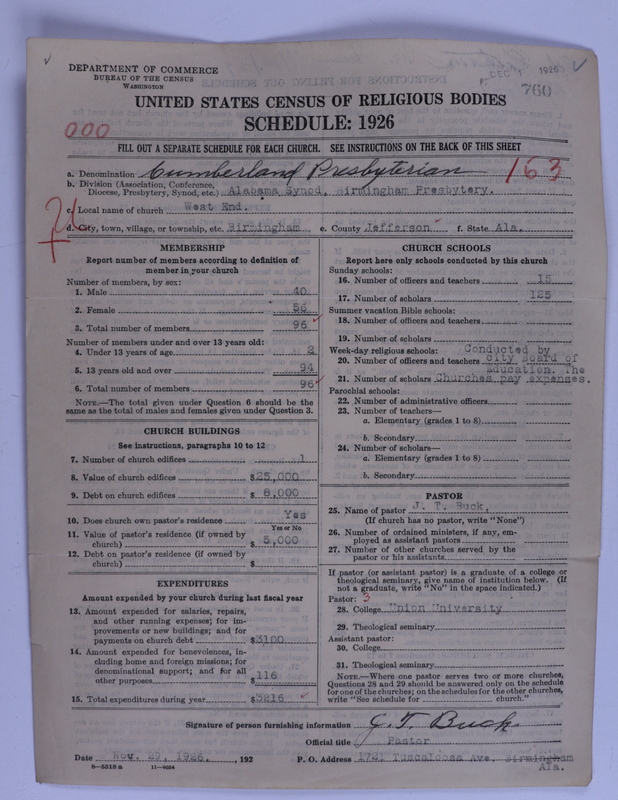 DEPARTMENT OF COMMERCE
BUREAU OF THE CENSUS
WASHINGTON
DEC 1 1926
760
UNITED STATES CENSUS OF RELIGIOUS BODIES
SCHEDULE: 1926
000
FILL OUT A SEPARATE SCHEDULE FOR EACH CHURCH. SEE INSTRUCTIONS ON THE BACK OF THIS SHEET
a. Denomination Cumberland Presbyterian
163
b. Division (Association, Conference, Diocese, Presbytery, Synod, etc.) Alabama Synod, Birmingham Presbytery.
c. Local name of church West End.
d. City, town, village, or township, etc. Birmingham e. County Jefferson f. State Ala.
MEMBERSHIP
Report number of members according to definition of
member in your church
Number of members, by sex:
1. Male 40
2. Female 56
3. Total number of members 96
Number of members under and over 13 years old:
4. Under 13 years of age 2
5. 13 years old and over 94
6. Total number of members 96
NOTE.—The total given under Question 6 should be
same as the total of males and females given under Question 3.
CHURCH BUILDINGS
See instructions, paragraphs 10 to 12
7. Number of church edifices 1
8. Value of church edifices $25,000
9. Debt on church edifices $ 8,000
10. Does church own pastor's residence Yes
Yes or No
11. Value of pastor's residence (if owned by
church) $ 5,000
12. Debt on pastor's residence (if owned by
church) $
EXPENDITURES
Amount expended by your church during last fiscal year
13. Amount expended for salaries, repairs,
and other running expenses; for im-
provements or new buildings; and for
payments on church debt $3100
14. Amount expended for benevolences, in-
cluding home and foreign missions; for
denominational support; and for all
other purposes $116
15. Total expenditures during year $3216
CHURCH SCHOOLS
Report here only schools conducted by this church
Sunday schools:
16. Number of officers and teachers 15
17. Number of scholars 125
Summer vacation Bible schools:
18. Number of officers and teachers
19. Number of scholars
Week-day religious schools: Conducted by
20. Number of officers and teachers city Board of
Education. The
21. Number of scholars Churches pay expenses.
Parochial schools:
22. Number of administrative officers
23. Number of teachers—
a. Elementary (grades 1 to 8)
b. Secondary
24. Number of scholars—
a. Elementary (grades 1 to 8)
b. Secondary
PASTOR
25. Name of pastor J. T. Buck,
(If church has no pastor, write "None")
26. Number of ordained ministers, if any, em-
ployed as assistant pastors
27. Number of other churches served by the
pastor or his assistants
If pastor (or assistant pastor) is a graduate of a college or
theological seminary, give name of institution below. (If
not a graduate, write "No" in the space indicated.)
Pastor: 3
28. College Union University
29. Theological seminary
Assistant pastor:
30. College
31. Theological seminary
NOTE.—Where one pastor serves two or more churches,
Questions 28 and 29 should be answered only on the schedule
for one of the churches; on the schedules for the other churches,
write "See schedule for church."
Signature of person furnishing information J. T. Buck
Official title Pastor
Date Nov. 29, 1926. , 192 P. O. Address 1721 Tuscaloosa Ave. Birmingham
Ala.
8—5318 a 11—9024